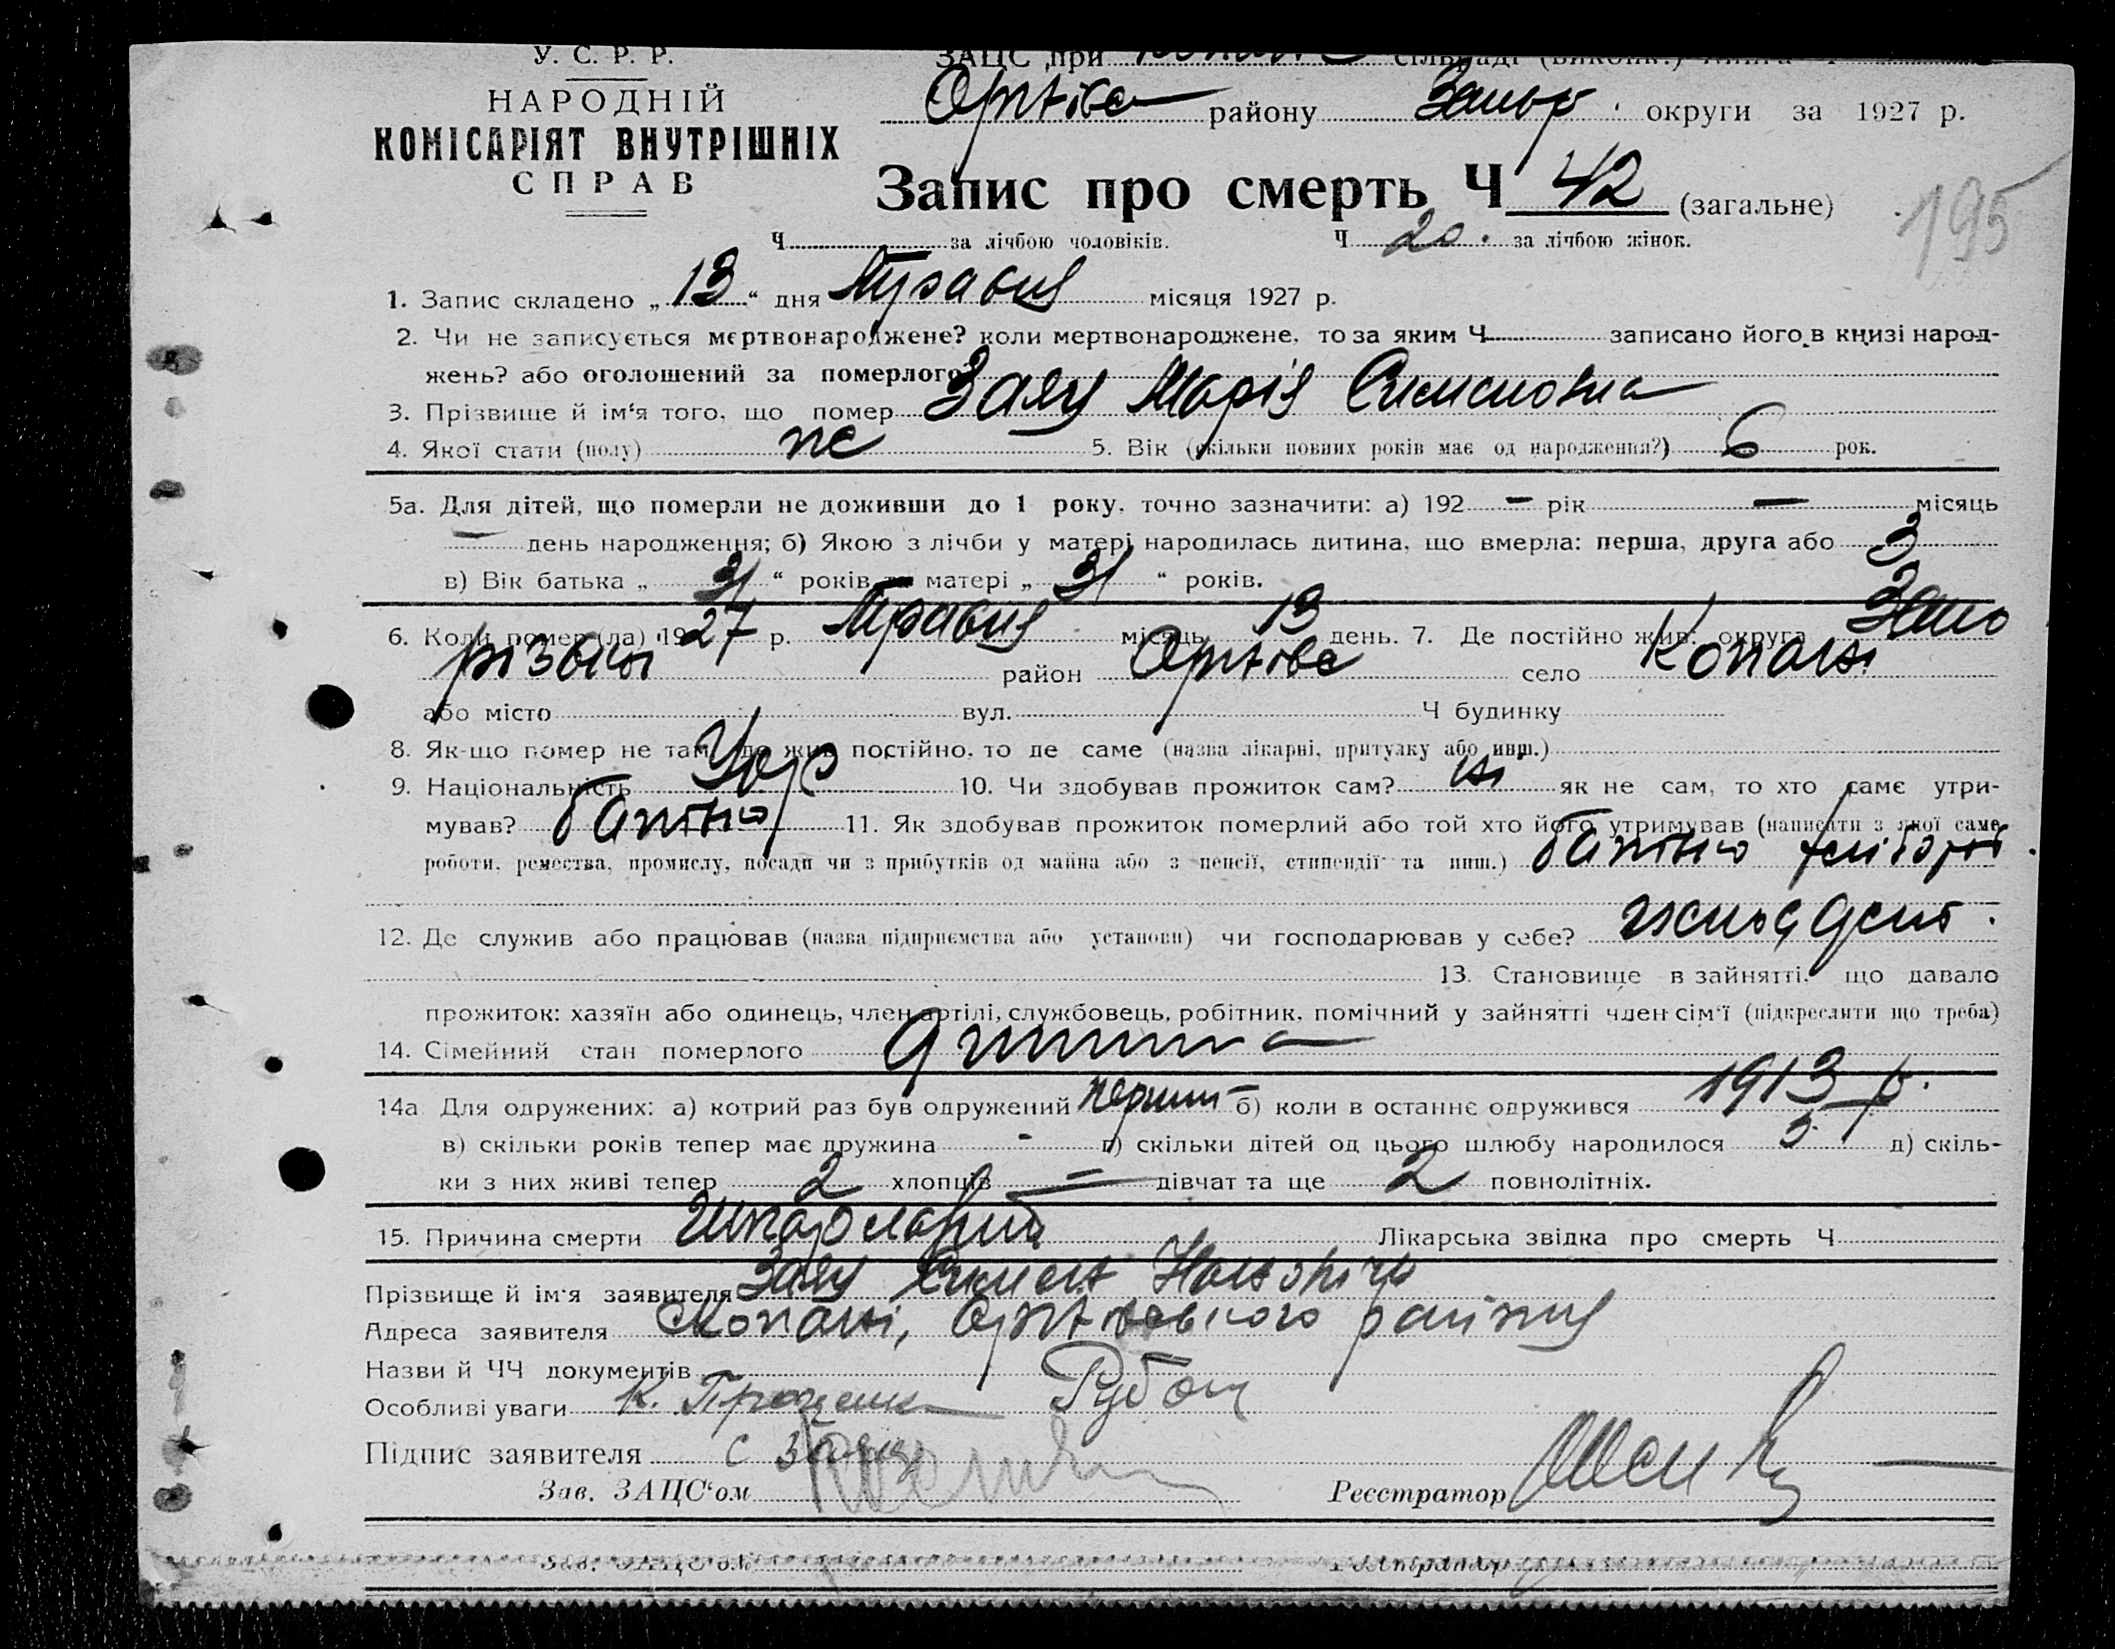 У. С. Р. Р.
НАРОДНІЙ
КОМІСАРІЯТ ВНУТРІШНІХ
СПРАВ
ЗАЦС при сільраді (виконк.) Книга
району Запор. округи за 1927 р.
Запис про смерть Ч 42 (загальне)
195
Ч за лічбою чоловіків. Ч 20. за лічбою жінок.
1. Запис складено „13“ дня Травня місяця 1927 р.
2. Чи не записується мертвонароджене? коли мертвонароджене, то за яким Ч записано його в книзі народ-
жень? або оголошений за померлого?
3. Прізвище й ім‘я того, що помер Заяц Марія
4. Якої стати (полу) 5. Вік (скільки повних років має од народження?) 6 рок.
5а. Для дітей, що померли не доживши до 1 року, точно зазначити: а) 192 — рік — місяць
— день народження; б) Якою з лічби у матері народилась дитина, що вмерла: перша, друга або 3
в) Вік батька „31“ років та матері „31“ років.
6. Коли помер (ла) 1927 р. Травня місяць 13 день. 7. Де постійно жив: округа Запо
різська район село Копані
або місто вул. Ч будинку
8. Як-що помер не там, де жив постійно, то де саме (назва лікарні, притулку або инш.)
9. Національність Укр 10. Чи здобував прожиток сам? ні як не сам, то хто саме утри-
мував? батько 11. Як здобував прожиток померлий або той хто його утримував (написати з якої саме
роботи, ремества, промислу, посади чи з прибутків од майна або з пенсії, стипендії та инш.) батько хлібороб.
12. Де служив або працював (назва підприємства або установи) чи господарював у себе?
13. Становище в зайнятті, що давало
прожиток: хазяїн або одинець, член артілі, службовець, робітник, помічний у зайнятті член сім‘ї (підкреслити що треба)
14. Сімейний стан померлого дитина
14а Для одружених: а) котрий раз був одружений перший б) коли в останнє одружився 1913 р.
в) скільки років тепер має дружина - г) скільки дітей од цього шлюбу народилося д) скіль-
ки з них живі тепер 2 хлопців — дівчат та ще 2 повнолітніх.
15. Причина смерти Шкарлатина Лікарська звідка про смерть Ч
Прізвище й ім‘я заявителя Заяц
Адреса заявителя Копані, району
Назви й ЧЧ документів
Особливі уваги К. Проценко
Підпис заявителя С Заяц
Зав. ЗАЦС‘ом Реєстратор
Зав. ЗАЦС‘ом Реєстратор